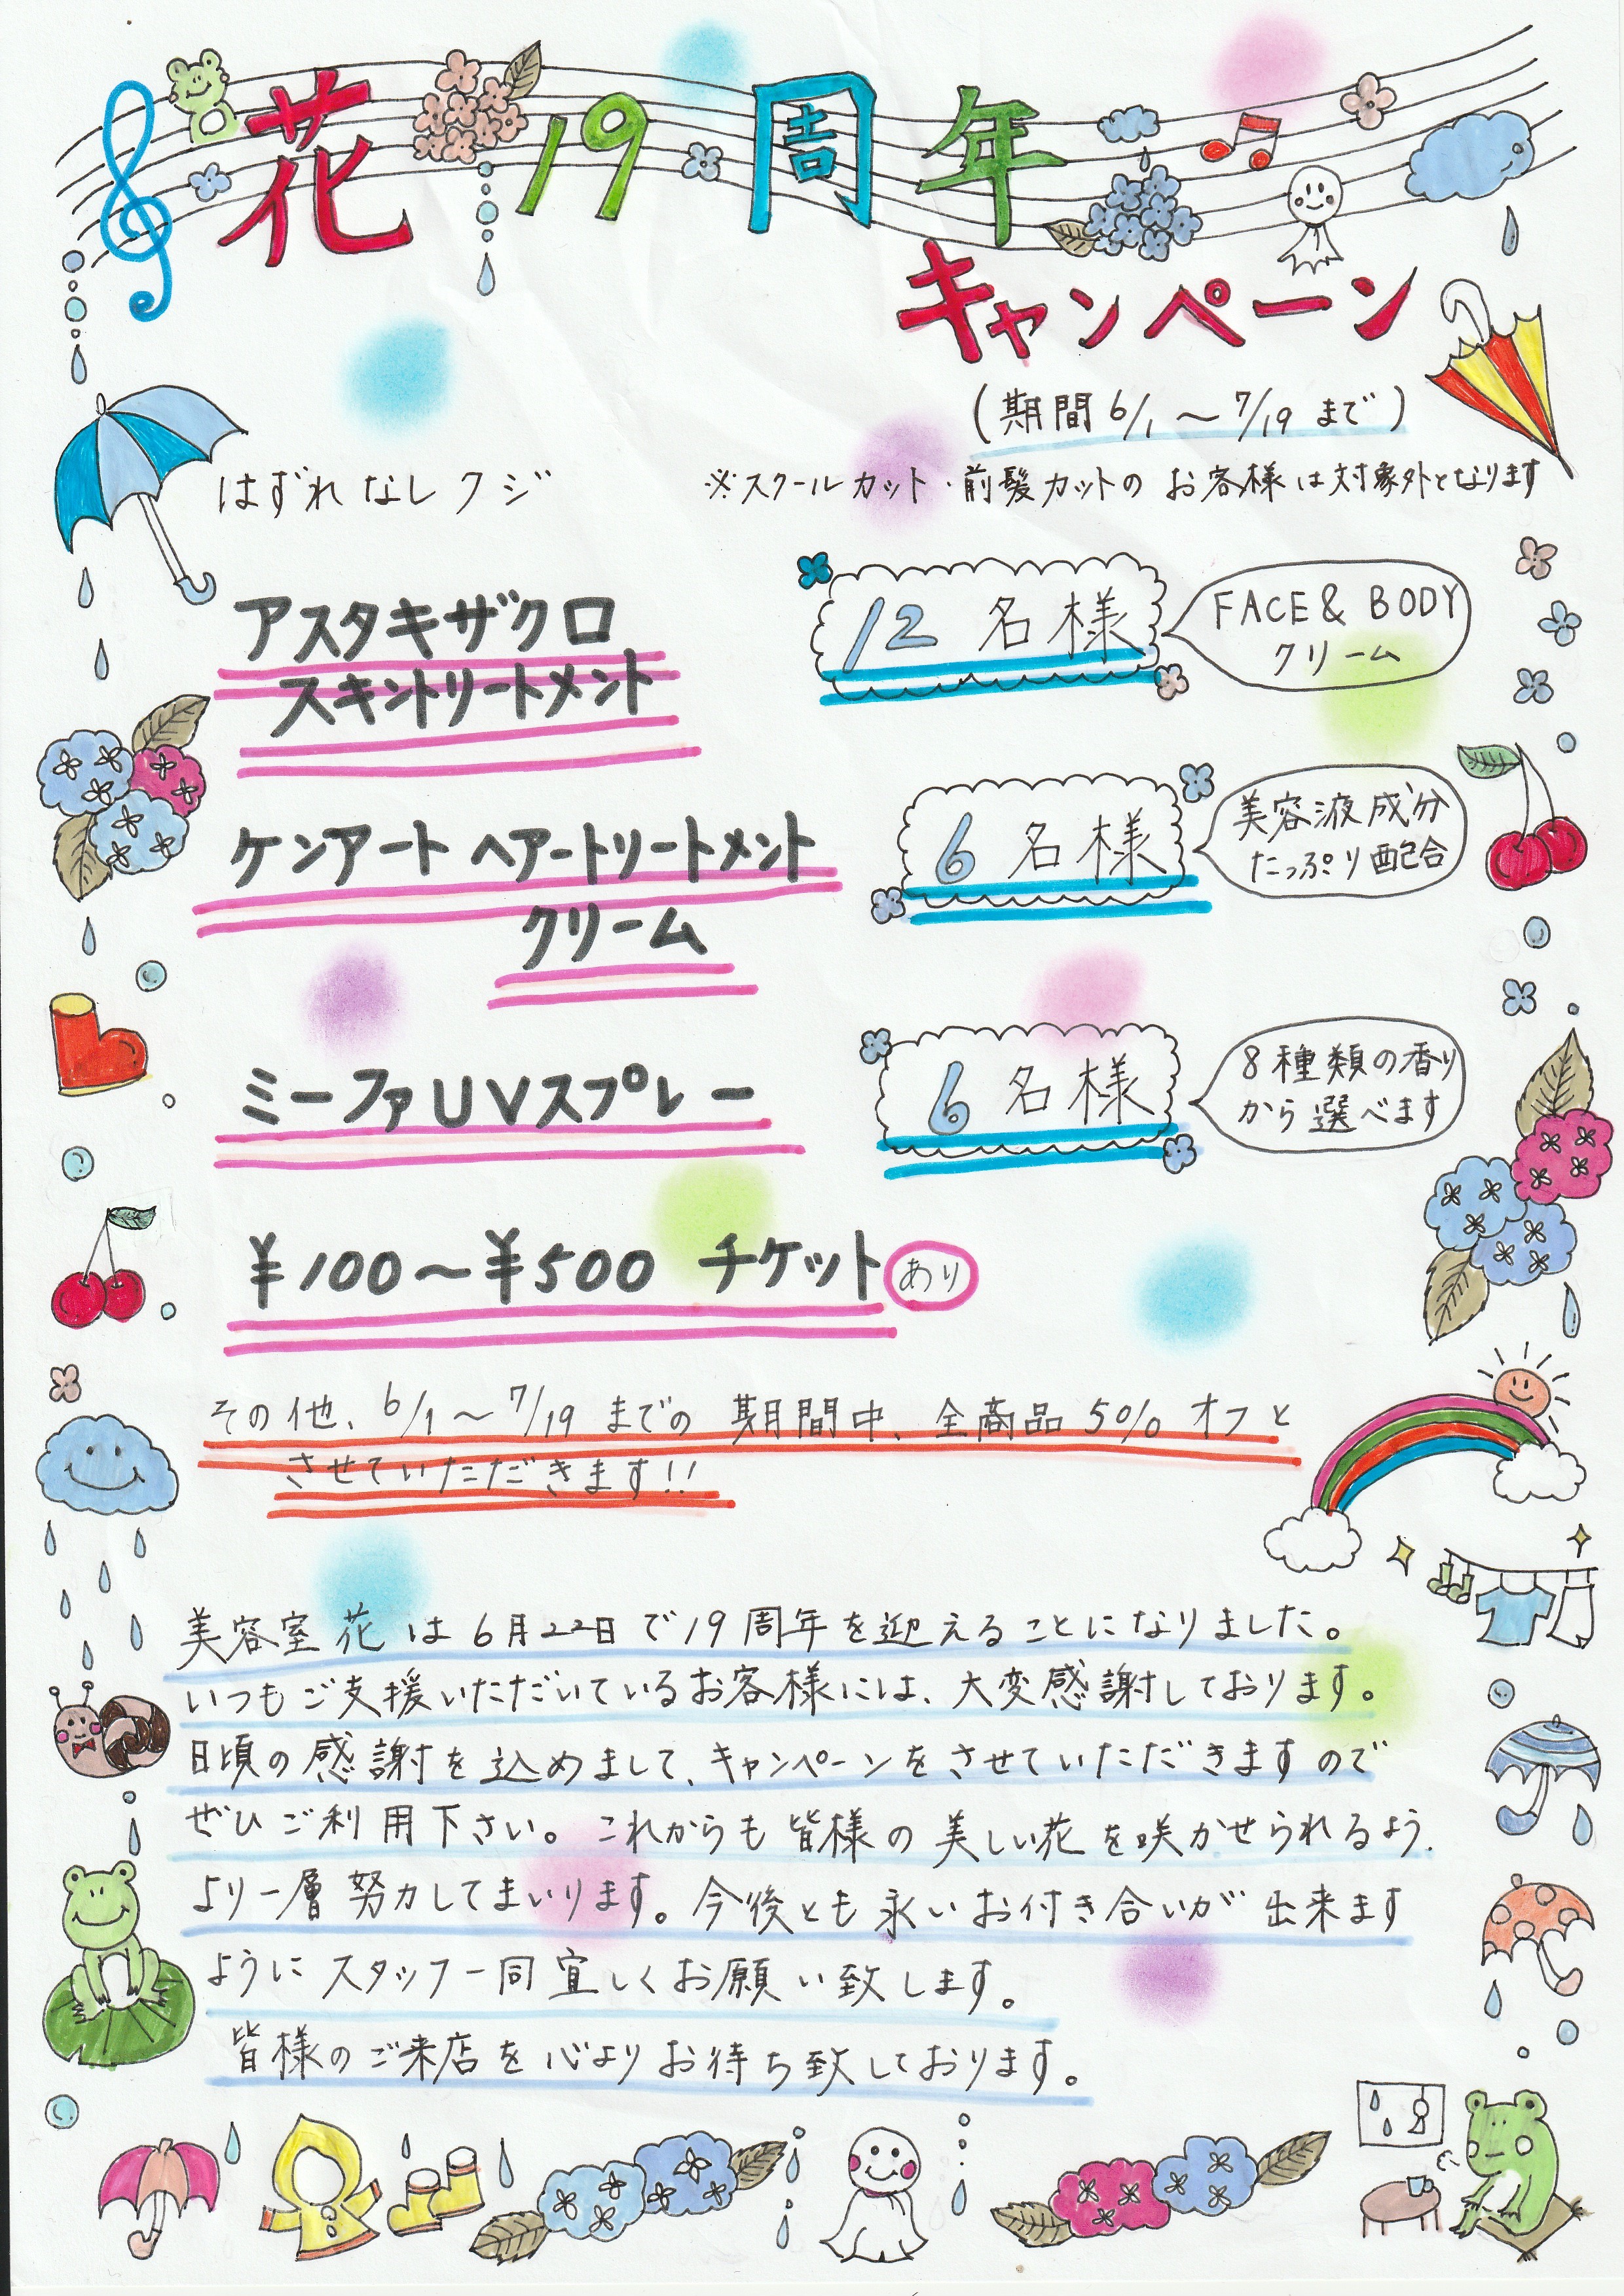 花19周年
キャンペーン
(期間6/1～7/19まで)
はずれなしクジ
※スクールカット・前髪カットのお客様は対象外となります
アスタキザクロ
スキントリートメント
12名様
FACE & BODY
クリーム
ケンアート ヘアートリートメント
クリーム
6名様
美容液成分
たっぷり配合
ミーファUVスプレー
6名様
8種類の香り
から選べます
¥100～¥500 チケットあり
その他、6/1～7/19までの期間中、全商品5%オフと
させていただきます!!
美容室花は6月22日で19周年を迎えることになりました。
いつもご支援いただいているお客様には、大変感謝しております。
日頃の感謝を込めまして、キャンペーンをさせていただきますので
ぜひご利用下さい。これからも皆様の美しい花を咲かせられるよう、
より一層努力してまいります。今後とも永いお付き合いが出来ます
ようにスタッフ一同宜しくお願い致します。
皆様のご来店を心よりお待ち致しております。